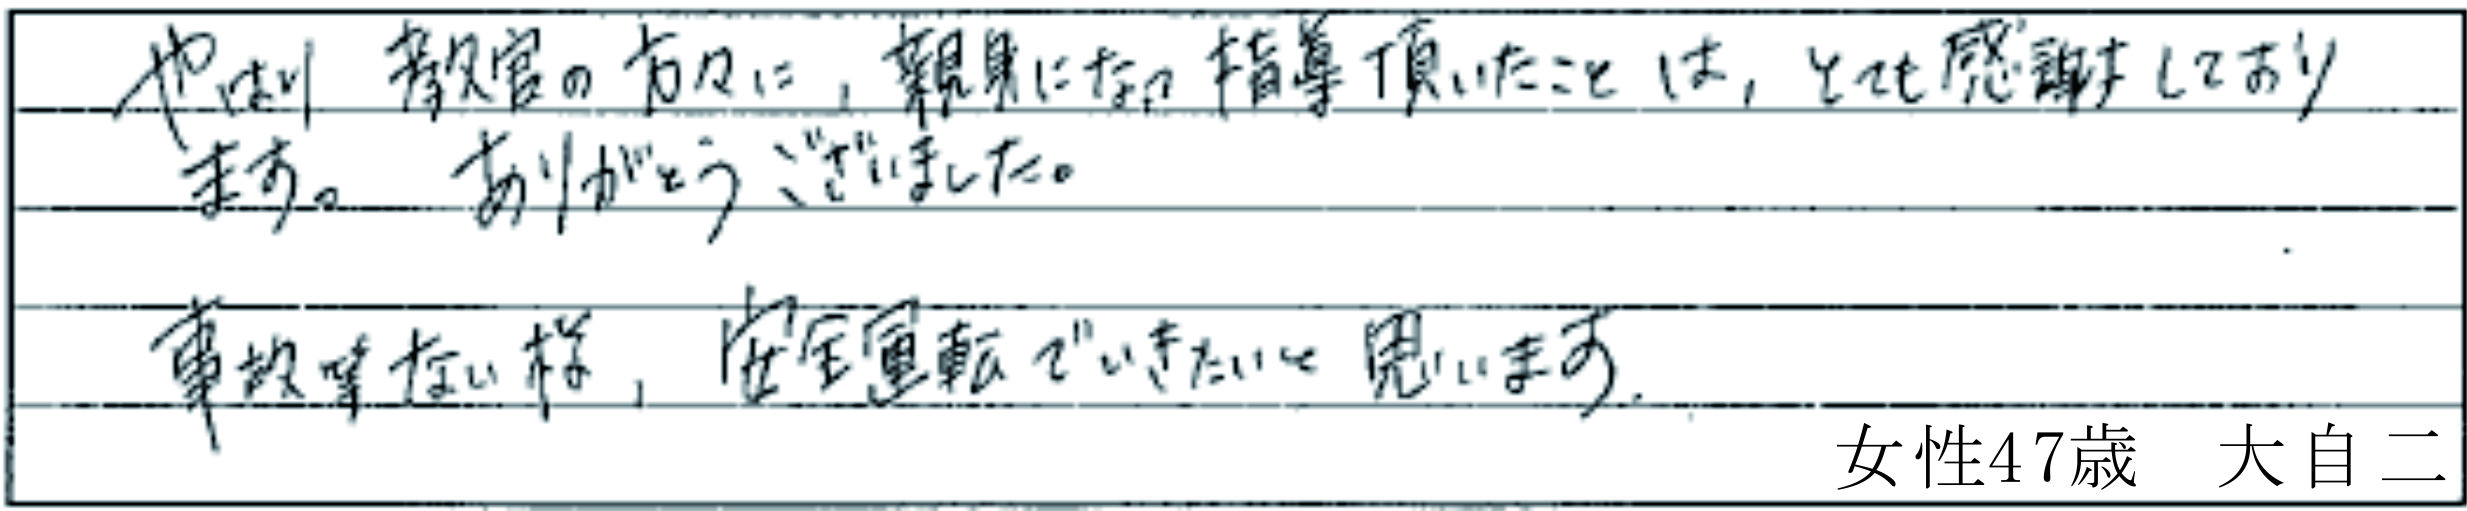 やはり 教官の方々に、親身になって指導頂いたことは、とても感謝しており
ます。 ありがとうございました。
事故等ない様、安全運転でいきたいと思います.
女性47歳 大自二